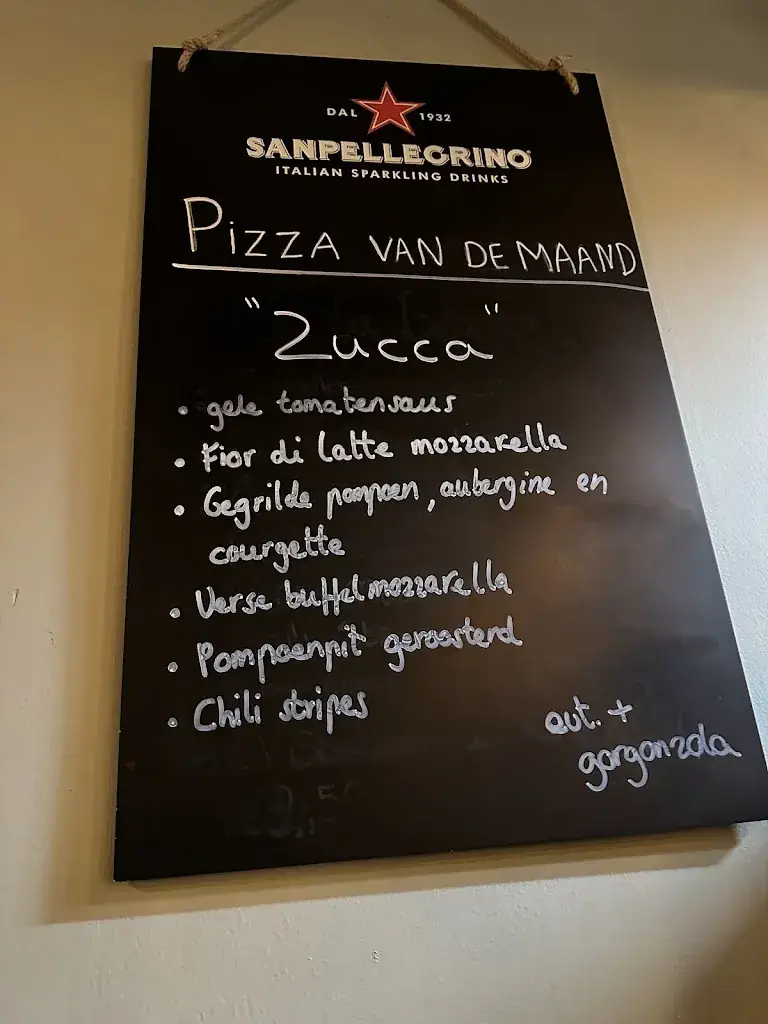 DAL 1932
SANPELLEGRINO
ITALIAN SPARKLING DRINKS
PIZZA VAN DE MAAND
"Zucca"
• gele tomatensaus
• Fior di latte mozzarella
• Gegrilde pompoen, aubergine en
courgette
• Verse buffelmozzarella
• Pompoenpit geroosterd
• Chili stripes
eut. +
gorgonzola